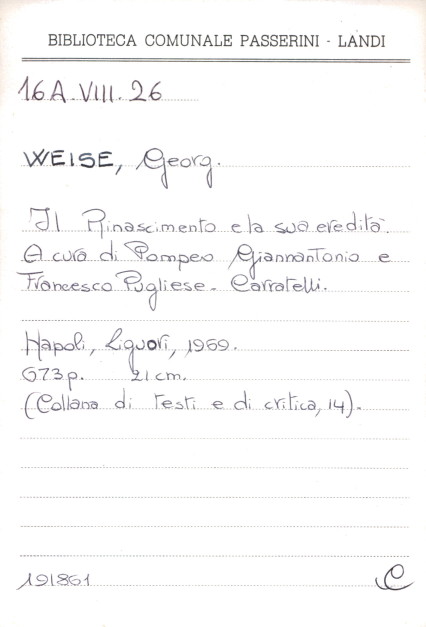 BIBLIOTECA COMUNALE PASSERINI - LANDI
16A.VIII.26
WEISE, Georg.
Il Rinascimento e la sua eredità.
A cura di Pompeo Giannantonio e
Francesco Pugliese-Carratelli.
Napoli, Liguori, 1969.
673p. 21cm.
(Collana di testi e di critica, 14).
191861
C